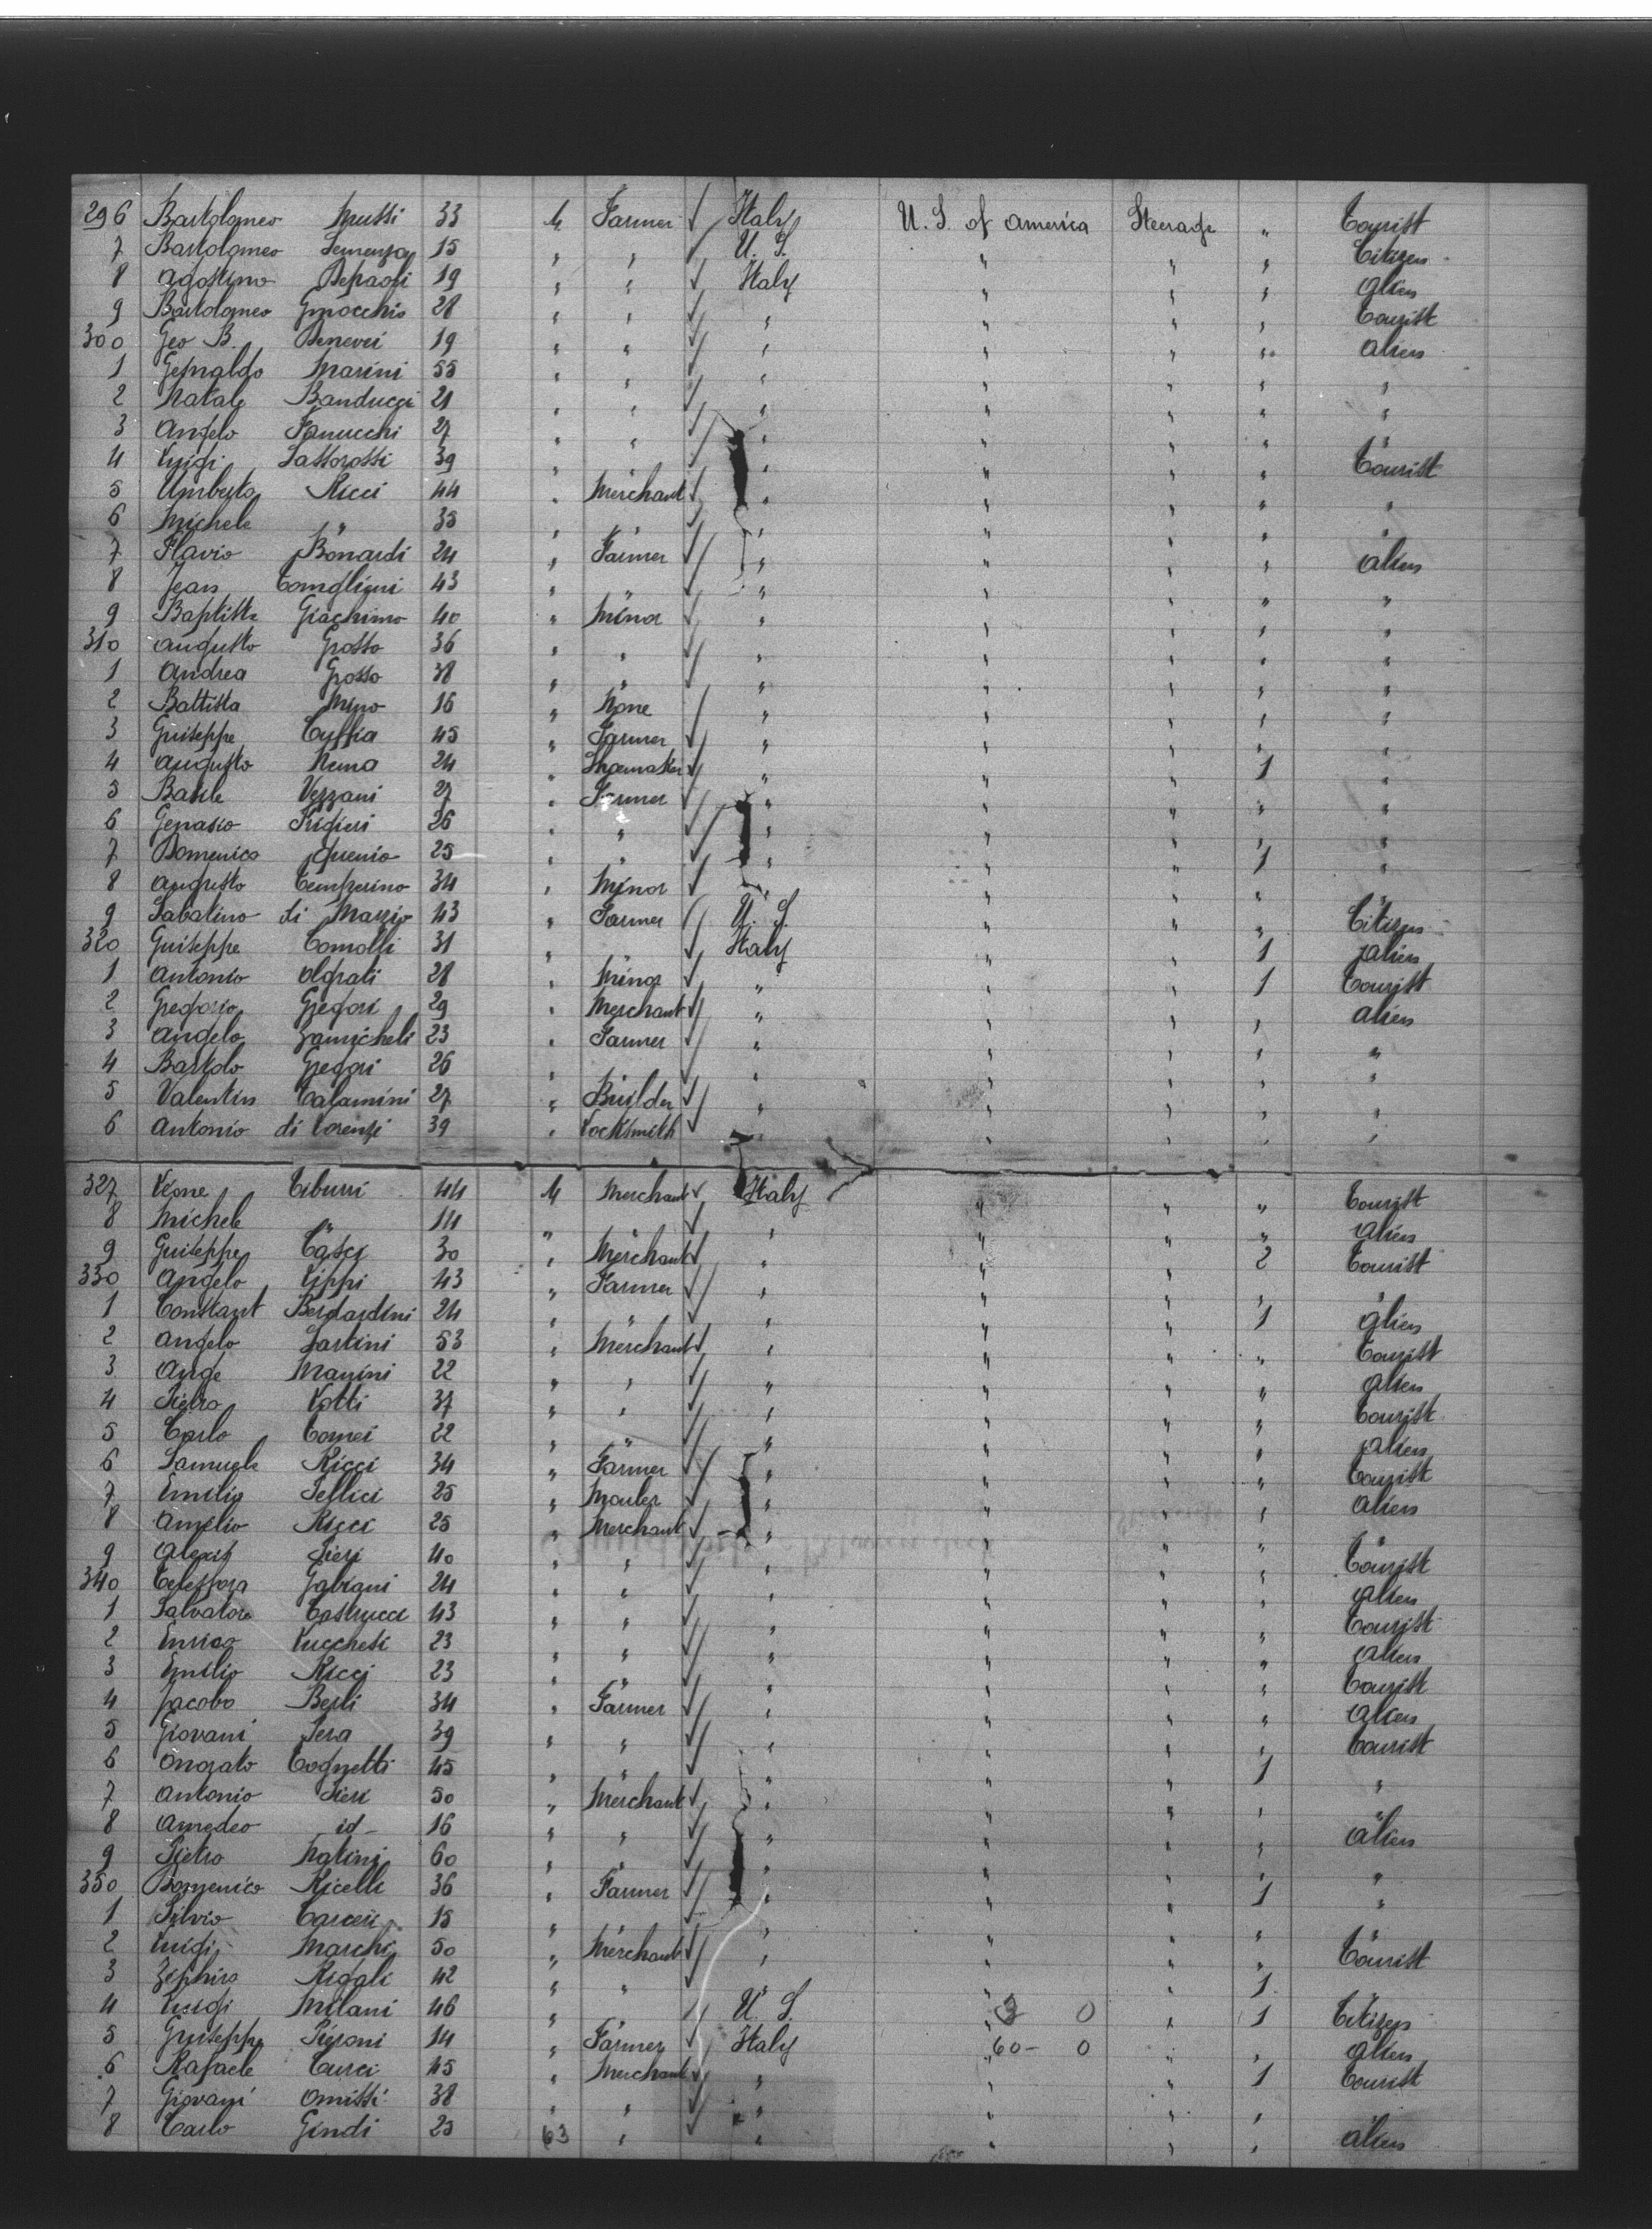 296 Bartolomeo Mussi 33 M Farmer ✓ Italy U. S. of america Steerage " Tourist
7 Bartolomeo Semenza 15 " " ✓ U. S. " " " Citizen
8 agostino Depaoli 19 " " ✓ Italy " " " alien
9 Bartolomeo Gnocchio 28 " " ✓ " " " " Tourist
300 Geo B. Benevei 19 " " ✓ " " " " alien
1 Marini 55 " " ✓ " " " " "
2 Natale Banducci 21 " " ✓ " " " " "
3 Angelo Fanucchi 27 " " ✓ " " " " "
4 Luigi 39 " " ✓ " " " " Tourist
5 Umberto Ricci 44 " Merchant ✓ " " " " "
6 Michele " 35 " " ✓ " " " " "
7 Flavio Bonardi 24 " Farmer ✓ " " " " alien
8 Jean 43 " " ✓ " " " " "
9 Baptiste Giachimo 40 " Minor ✓ " " " " "
310 augusto Grosso 36 " " ✓ " " " " "
1 Andrea Grosso 38 " " ✓ " " " " "
2 Battista Mino 16 " None ✓ " " " " "
3 Guiseppe 45 " Farmer ✓ " " " " "
4 augusto 24 " Shoemaker ✓ " " " 1 "
5 Basile Vezzani 27 " Farmer ✓ " " " " "
6 Genasio Frigieri 26 " " ✓ " " " " "
7 Domenico 25 " " ✓ " " " 1 "
8 augusto Temperino 34 " Minor ✓ " " " " "
9 Sabatino di Marzio 43 " Farmer ✓ U. S. " " " Citizen
320 Guiseppe Comolli 31 " ✓ Italy " " 1 alien
1 antonio olgiati 28 " Minor ✓ " " " 1 Tourist
2 Gregorio Gregori 29 " Merchant ✓ " " " " alien
3 angelo Zamicheli 23 " Farmer ✓ " " " " "
4 Bartolo Gregori 26 " " ✓ " " " " "
5 Valentin Calamini 27 " Builder ✓ " " " " "
6 antonio di Lorenzi 39 " Locksmith ✓ " " " "
327 Leone Tiburzi 44 M Merchant ✓ Italy " " " Tourist
8 Michele " 14 " ✓ " " " " alien
9 Guiseppe Casci 30 " Merchant ✓ " " " 2 Tourist
330 Angelo Lippi 43 " Farmer ✓ " " " " "
1 Constant Berdardini 24 " " ✓ " " " 1 alien
2 angelo Sartini 53 " Merchant ✓ " " " " Tourist
3 Ange 22 " " ✓ " " " " alien
4 Pietro Lotti 37 " " ✓ " " " " Tourist
5 Carlo Tomei 22 " " ✓ " " " " alien
6 Samuele Ricci 34 " Farmer ✓ " " " " Tourist
7 Emilio Pellici 25 " Mouler ✓ " " " " alien
8 Amelio Ricci 25 " Merchant ✓ " " " " "
9 Alexis Pieri 40 " " ✓ " " " " Tourist
340 Telesfora Gabiani 24 " " ✓ " " " " alien
1 Salvatore Castrucci 43 " " ✓ " " " " Tourist
2 Enrico Lucchesi 23 " " ✓ " " " " alien
3 Emilio Ricci 23 " " ✓ " " " " Tourist
4 Jacobo Berti 34 " Farmer ✓ " " " " alien
5 Giovani Pera 39 " " ✓ " " " " Tourist
6 Onorato Cognetti 45 " " ✓ " " " 1 "
7 antonio Pieri 50 " Merchant ✓ " " " " "
8 amedeo id- 16 " " ✓ " " " " alien
9 Pietro Natini 60 " " ✓ " " " " "
350 Domenico Ricelli 36 " Farmer ✓ " " " 1 "
1 Silvio 15 " " ✓ " " " " "
2 Luigi Marchi 50 " Merchant ✓ " " " " Tourist
3 Zephiro Rigali 42 " " ✓ " " " 1 "
4 Luigi Milani 46 " " U. S. " 3 0 " 1 Citizen
5 Guiseppe Pieroni 14 " Farmer ✓ Italy " 60- 0 " " alien
6 Rafaele Curci 45 " Merchant ✓ " " " 1 Tourist
7 Giovani Omissi 38 " " ✓ " " " " "
8 Carlo Gindi 25 63 " ✓ " " " " alien